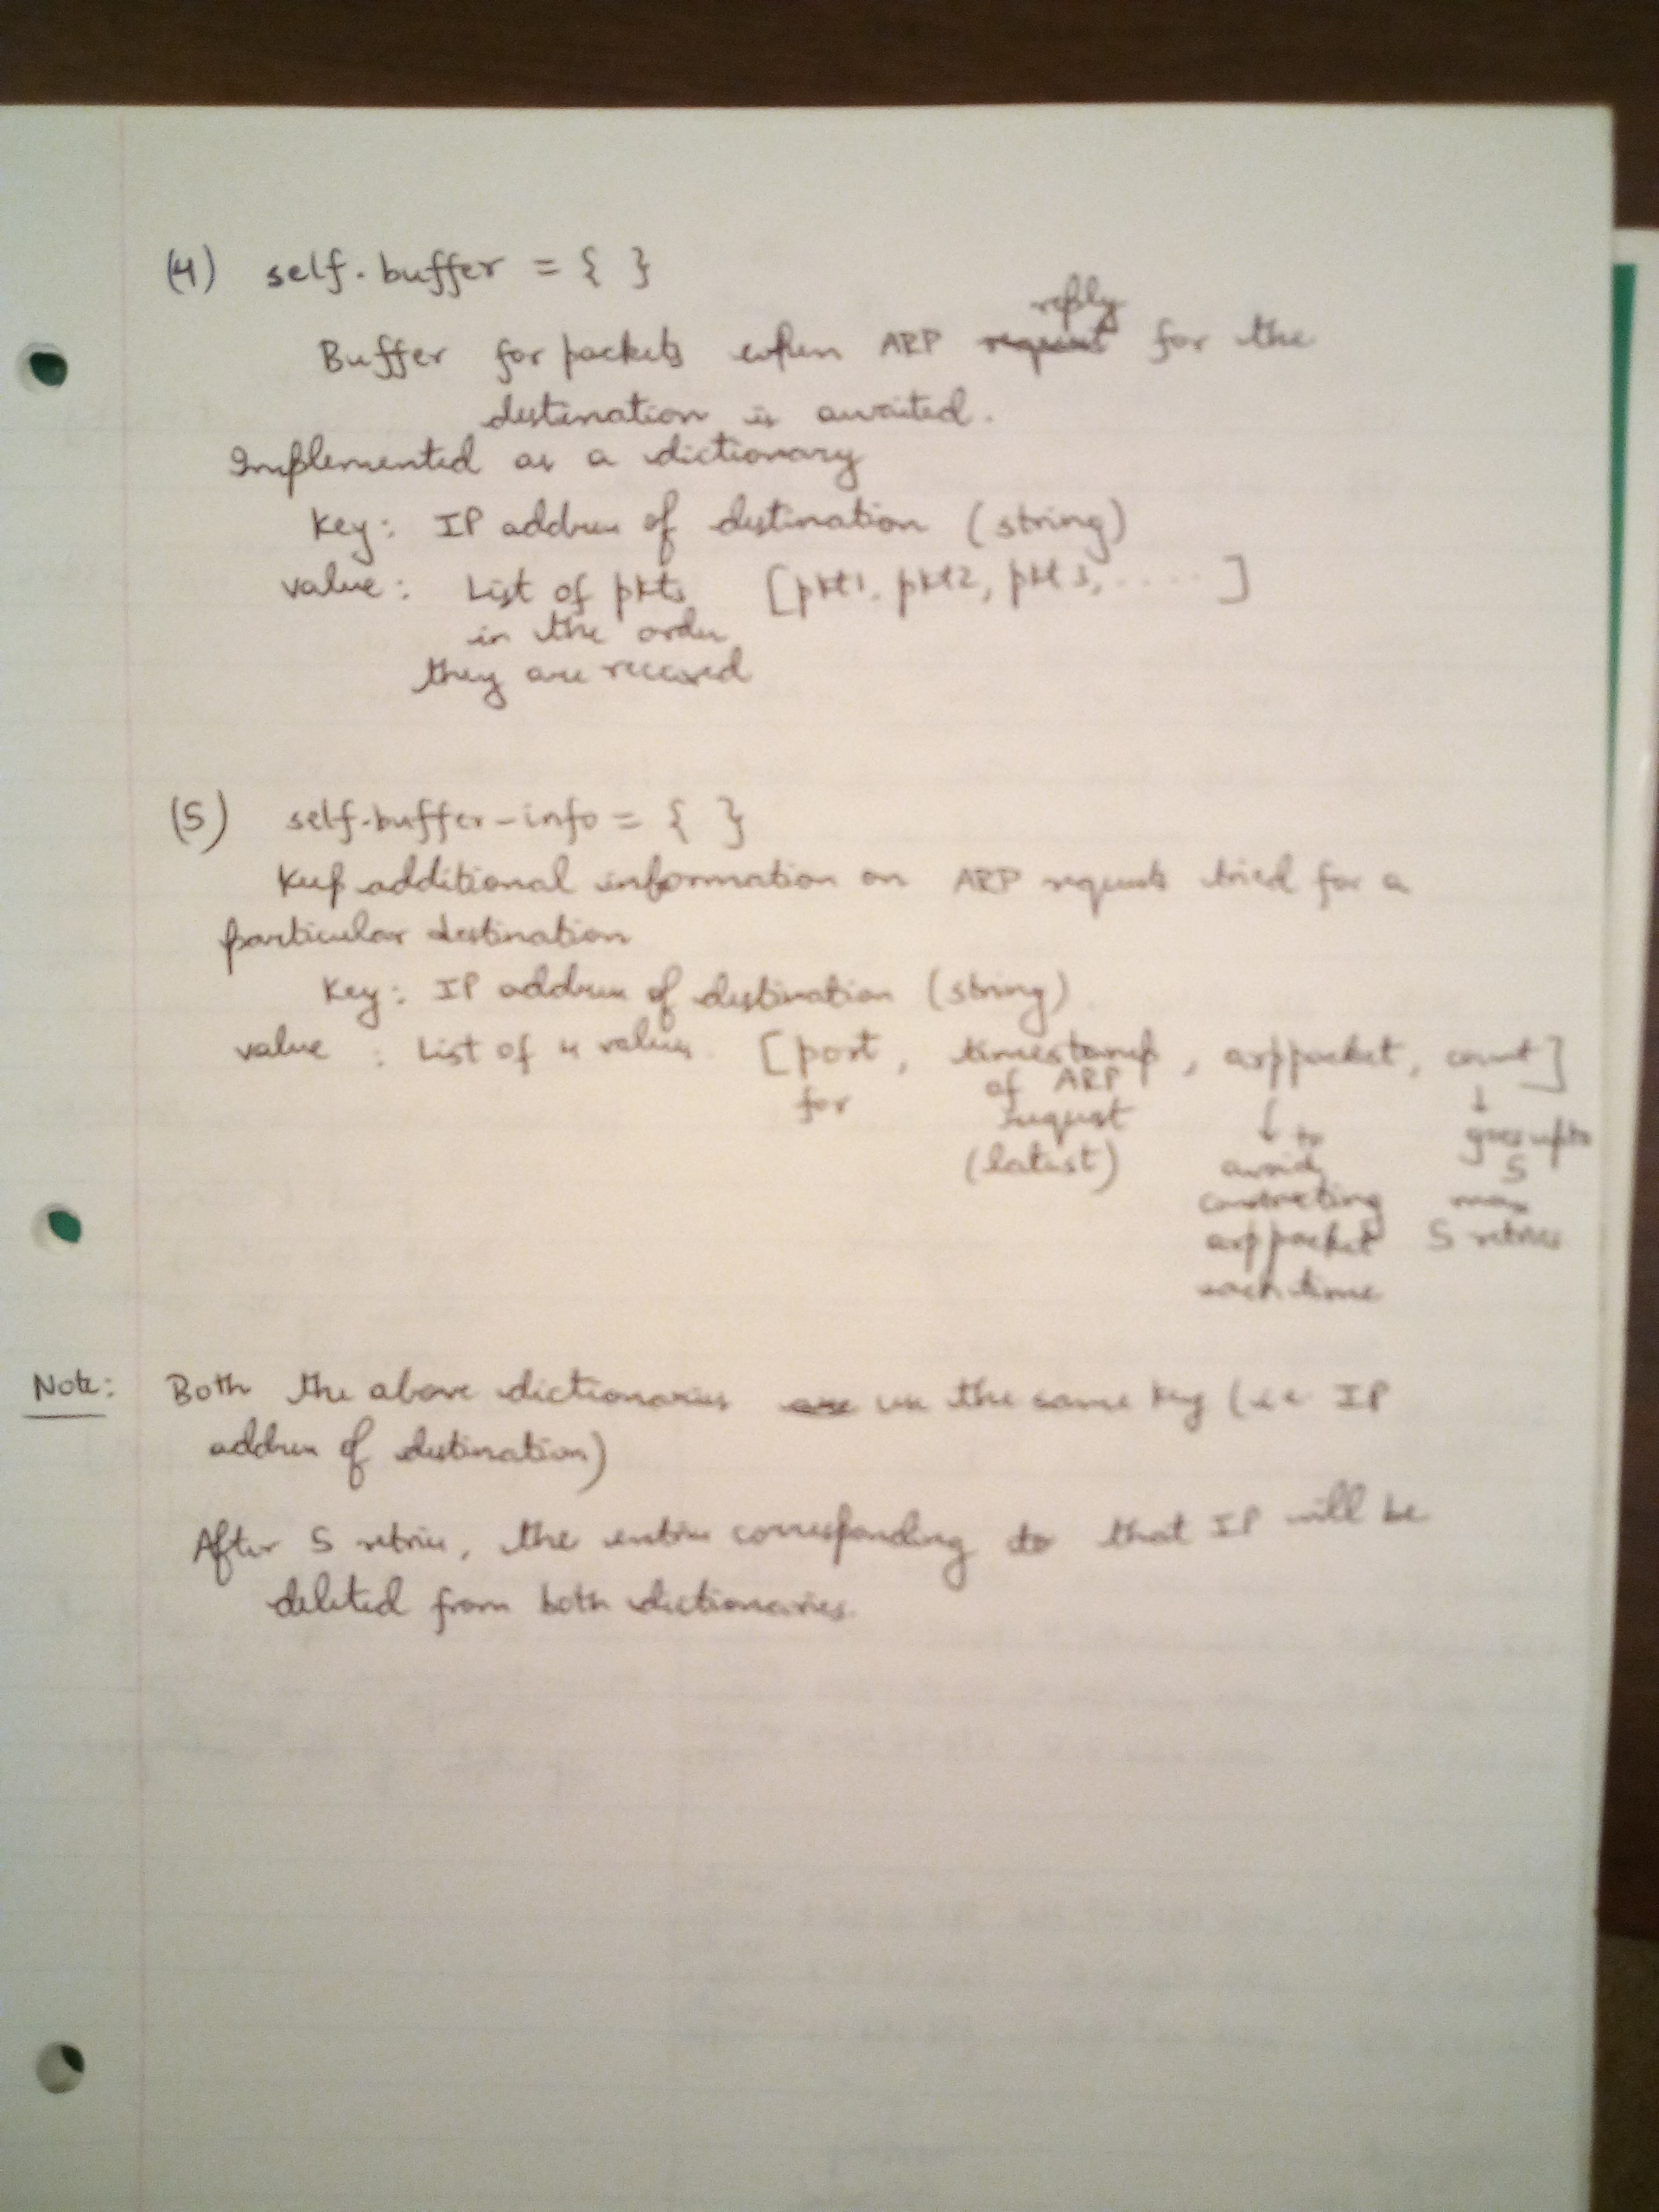 (4) self.buffer = { }
reply
Buffer for packets when ARP request for the
destination is awaited.
Implemented as a dictionary
Key: IP address of destination (string)
value: List of pkts [pkt1, pkt2, pkt3, ..... ]
in the order
they are received
(5) self.buffer-info = { }
Keep additional information on ARP requests tried for a
particular destination
Key: IP address of destination (string)
value : List of 4 values. [port, timestamp, arppacket, count]
for of ARP ↓ ↓
request to goes upto
(latest) avoid 5
constructing max
arppacket 5 retries
each time
Note: Both the above dictionaries are use the same key (i.e IP
address of destination)
After 5 retries, the entries corresponding to that IP will be
deleted from both dictionaries.